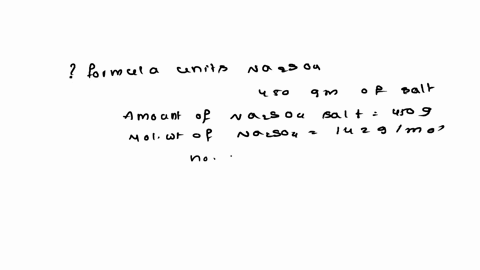 ? formula units Na2SO4
450 gm of salt
Amount of Na2SO4 salt = 450 g
Mol. wt of Na2SO4 = 142 g/mol
no. .